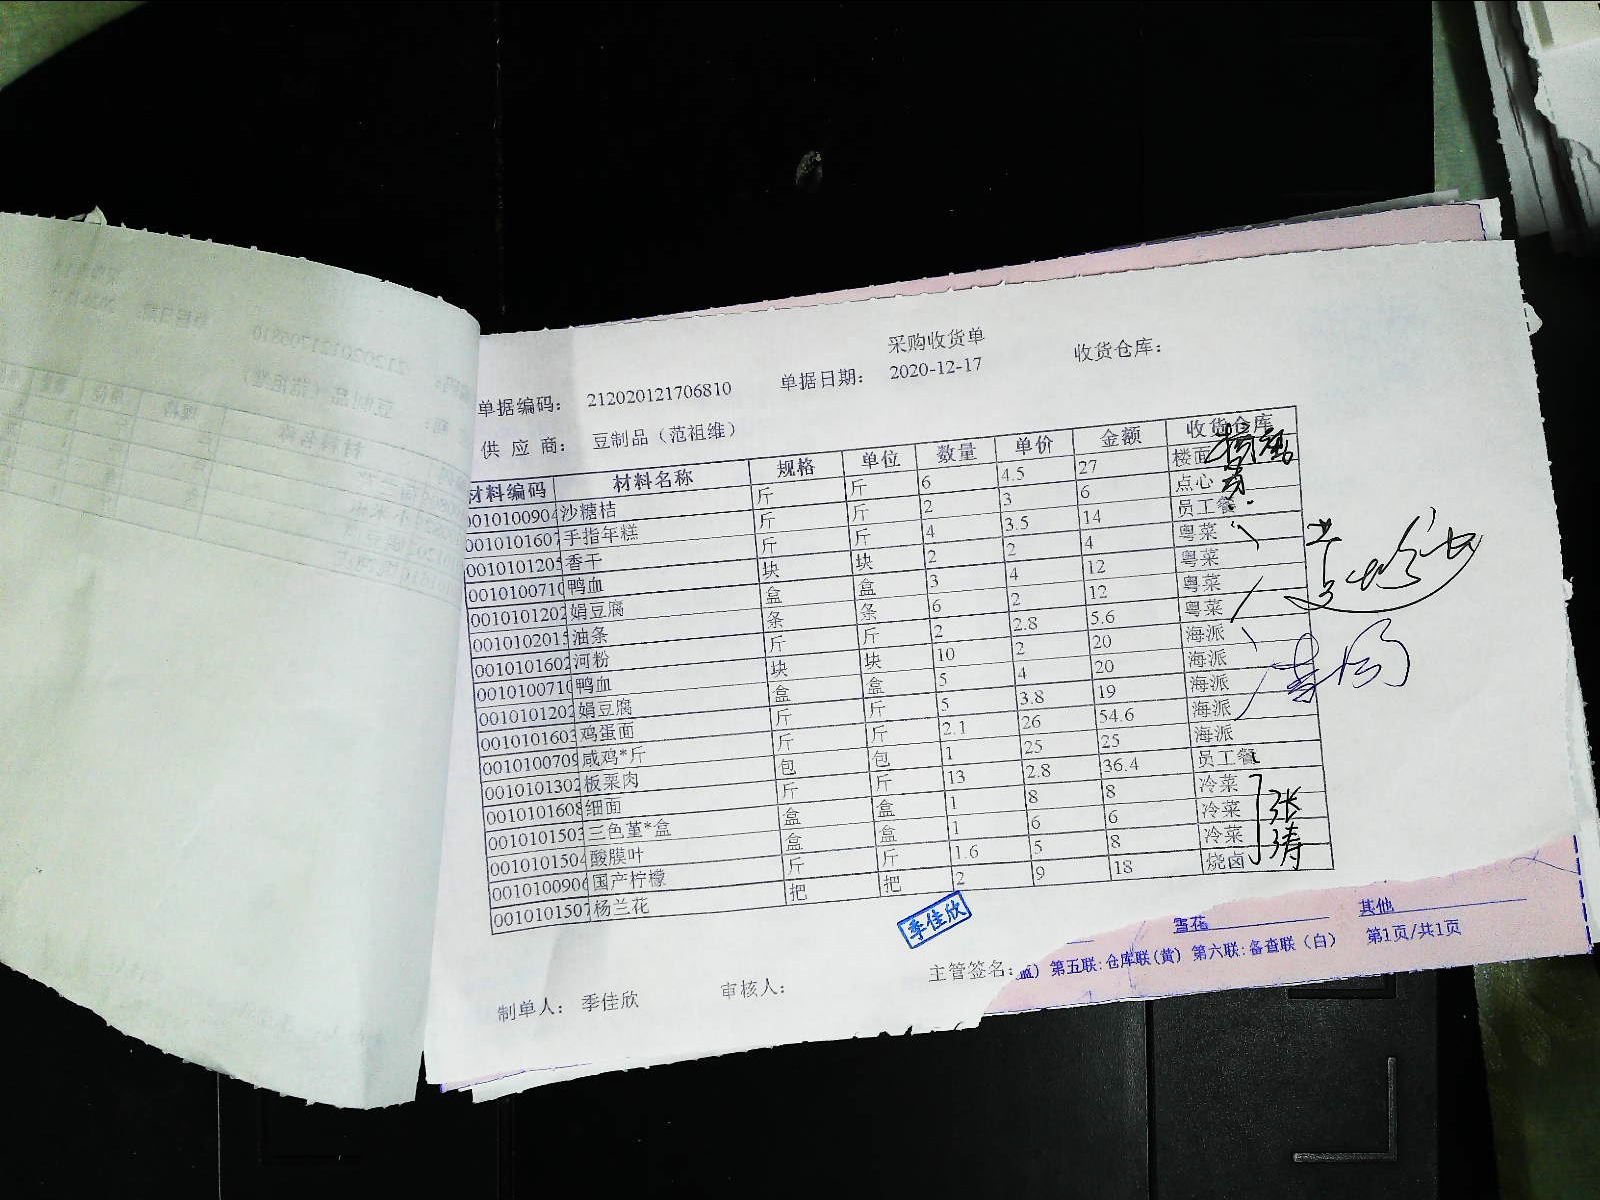 采购收货单
单据编码： 212020121706810 单据日期： 2020-12-17 收货仓库：
供 应 商： 豆制品（范祖维）
材料编码 材料名称 规格 单位 数量 单价 金额 收货仓库
0010100904 沙糖桔 斤 斤 6 4.5 27 楼面
0010101607 手指年糕 斤 斤 2 3 6 点心
0010101205 香干 斤 斤 4 3.5 14 员工餐
0010100710 鸭血 块 块 2 2 4 粤菜
0010101202 娟豆腐 盒 盒 3 4 12 粤菜
0010102015 油条 条 条 6 2 12 粤菜
0010101602 河粉 斤 斤 2 2.8 5.6 粤菜
0010100710 鸭血 块 块 10 2 20 海派
0010101202 娟豆腐 盒 盒 5 4 20 海派
0010101603 鸡蛋面 斤 斤 5 3.8 19 海派
0010100709 咸鸡*斤 斤 斤 2.1 26 54.6 海派
0010101302 板栗肉 包 包 1 25 25 海派
0010101608 细面 斤 斤 13 2.8 36.4 员工餐
0010101503 三色堇*盒 盒 盒 1 8 8 冷菜
0010101504 酸膜叶 盒 盒 1 6 6 冷菜
0010100906 国产柠檬 斤 斤 1.6 5 8 冷菜
0010101507 杨兰花 把 把 2 9 18 烧卤
张涛
季佳欣
雪花 其他
制单人： 季佳欣 审核人： 主管签名：
) 第五联:仓库联(黄) 第六联:备查联（白） 第1页/共1页